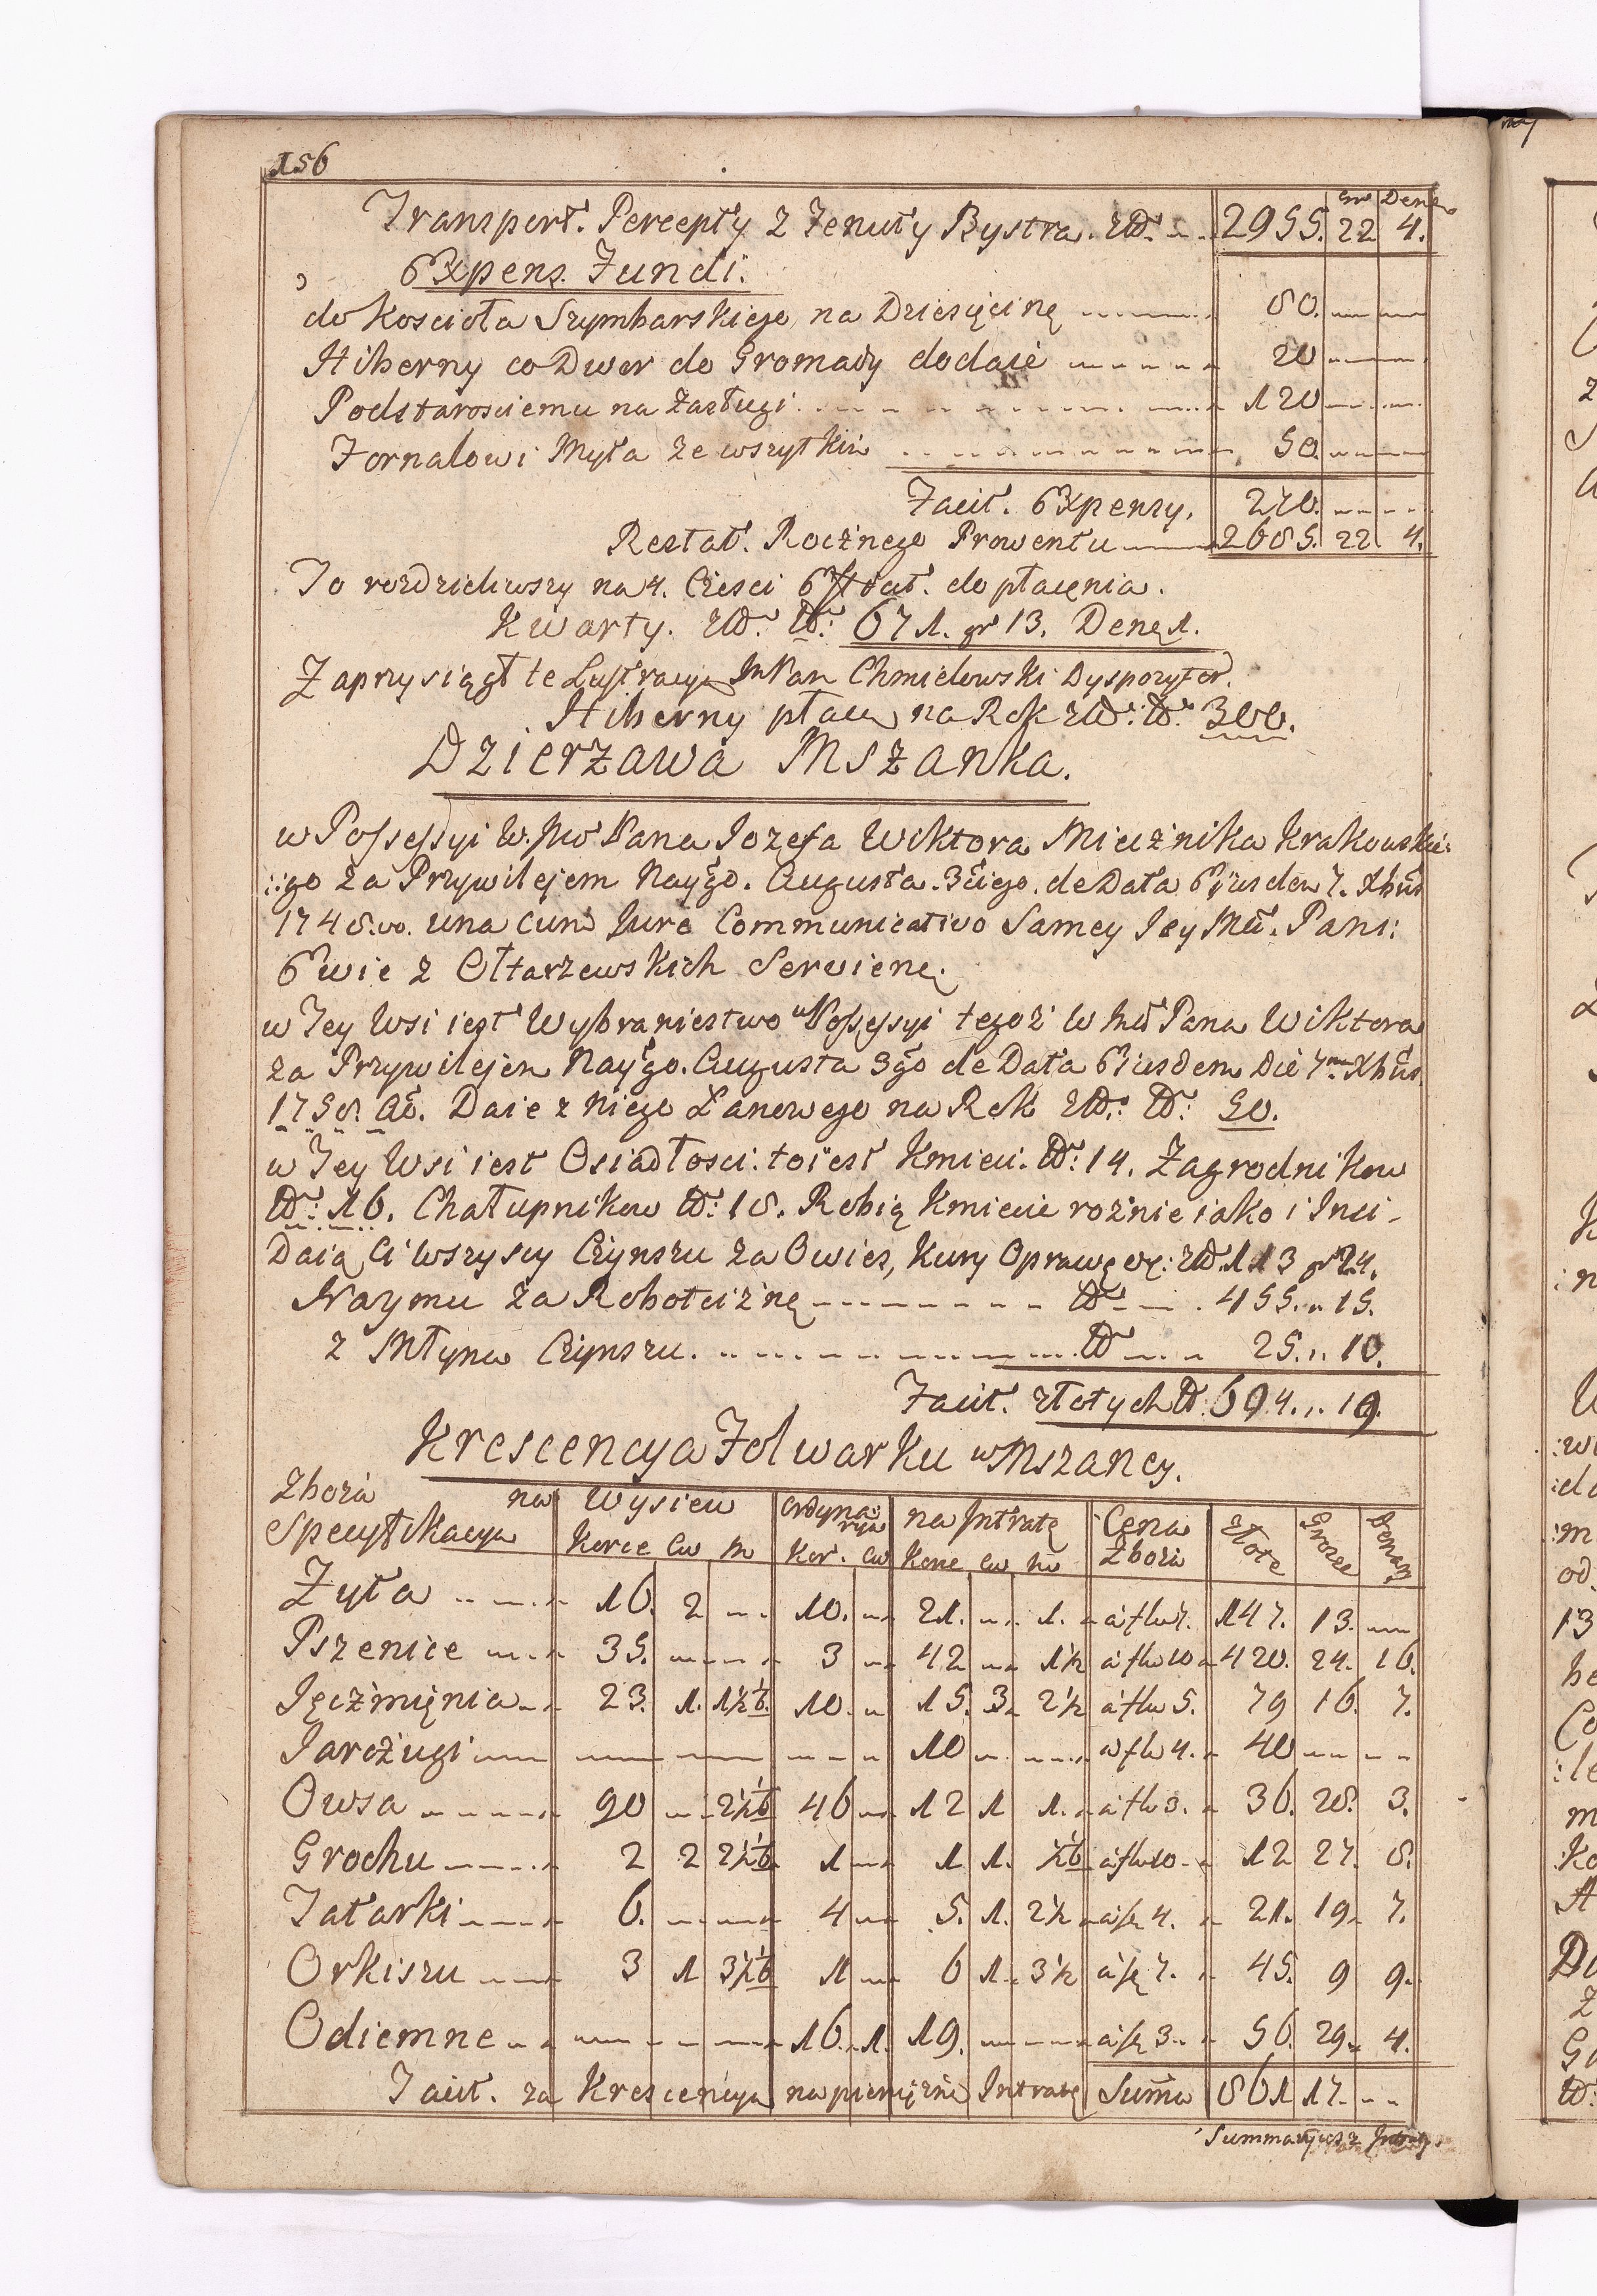 156
Gr Dena
Transport. Percepty z Tenuty Bystra. Złł. 2955. 22 4.
Expens. Fundi.
do Koscioła Szymbarskiego na Dziesięcinę 80.
Hiberny co Dwor do Gromady dodaie 20
Podstarosciemu na Zasługi 120
Fornalowi Myta ze wszytkim 50.
Facit. Expensy. 270.
Restat. Rocznego Prowentu 2685. 22. 4.
To rozdzieliwszy na 4. Częsci Efficit. do płacęnia.
Kwarty. Złł. N: 671. gr 13. Denę 1.
Zaprzysiągł te Lustracyą Pan Chmielowski Dyspozytor.
Hiberny płacą na Rok Złł: N: 300.
Dzierzawa Mszanka.
w Possessyi W. Jmć Pana Jozefa Wiktora Miecznika Krakowskie:
::go za Przywilejem Nayśgo. Augusta. 3ciego. de Data Eiusdem 7. Xbris
1748.vo. una cum Jure Communicativo Samey Jey Mci. Pani:
Ewie z Ołtarzewskich Servienę.
w Tey Wsi iest Wybraniestwo w Possessyi tegoż W Jmć Pana Wiktora
za Przywilejem Nayśgo. Augusta 3go de Data Eiusdem Die 7ma Xbris
1758. Ao. Daie z niego Łanowego na Rok Złł: N: 50.
w Tey Wsi iest Osiadłosci: to iest Kmieci. N: 14. Zagrodnikow
N: 16. Chałupnikow N: 18. Robią Kmiecie rożnie iako i Inci-
Daią Ci wszyscy Czynszu za Owies, Kury Oprawę etc: Złł. 113 gr 24.
Naymu za Robociznę N 455. „ 15.
z Młyna Czynszu. N 25. „ 10.
Facit. złotych N 694. „ 19.
Krescencya Folwarku w Mszancy.
Zboża na Wysiew Ordyna: na Jntratę Cęna Złote Grosze Denary
Specyfikacya Korce Cw M rya Kor. Cw Korce Cw M Zboża
Zyta 16. 2 10. 21. 1. a flw 7. 147. 13.
Pszenice 35. 3 42 1½ a flw 10 420. 24. 16.
Jęczmięnia 23. 1. 1½ 1/6. 10. 15. 3 2½ a flw 5. 79 16. 7.
Jarczugi 10 a flw 4. 40
Owsa 90 2½ 1/6 46 12 1 1. a flw 3. 36. 28. 3.
Grochu 2 2 2½ 1/6 1 1 1. ½ 1/6 a flw 10 12 27. 8.
Tatarki 6. 4 5. 1. 2½ a fl 4. 21. 19 7.
Orkiszu 3 1 3½ 1/6 1 6 1. 3½ a fl 7. 45. 9 9.
Odiemne 16. 1. 19. a fl 3. 56. 29 4.
Facit. za Krescencyą na pieniężną Intratę Suma 861 17.
Summaryusz Intraty